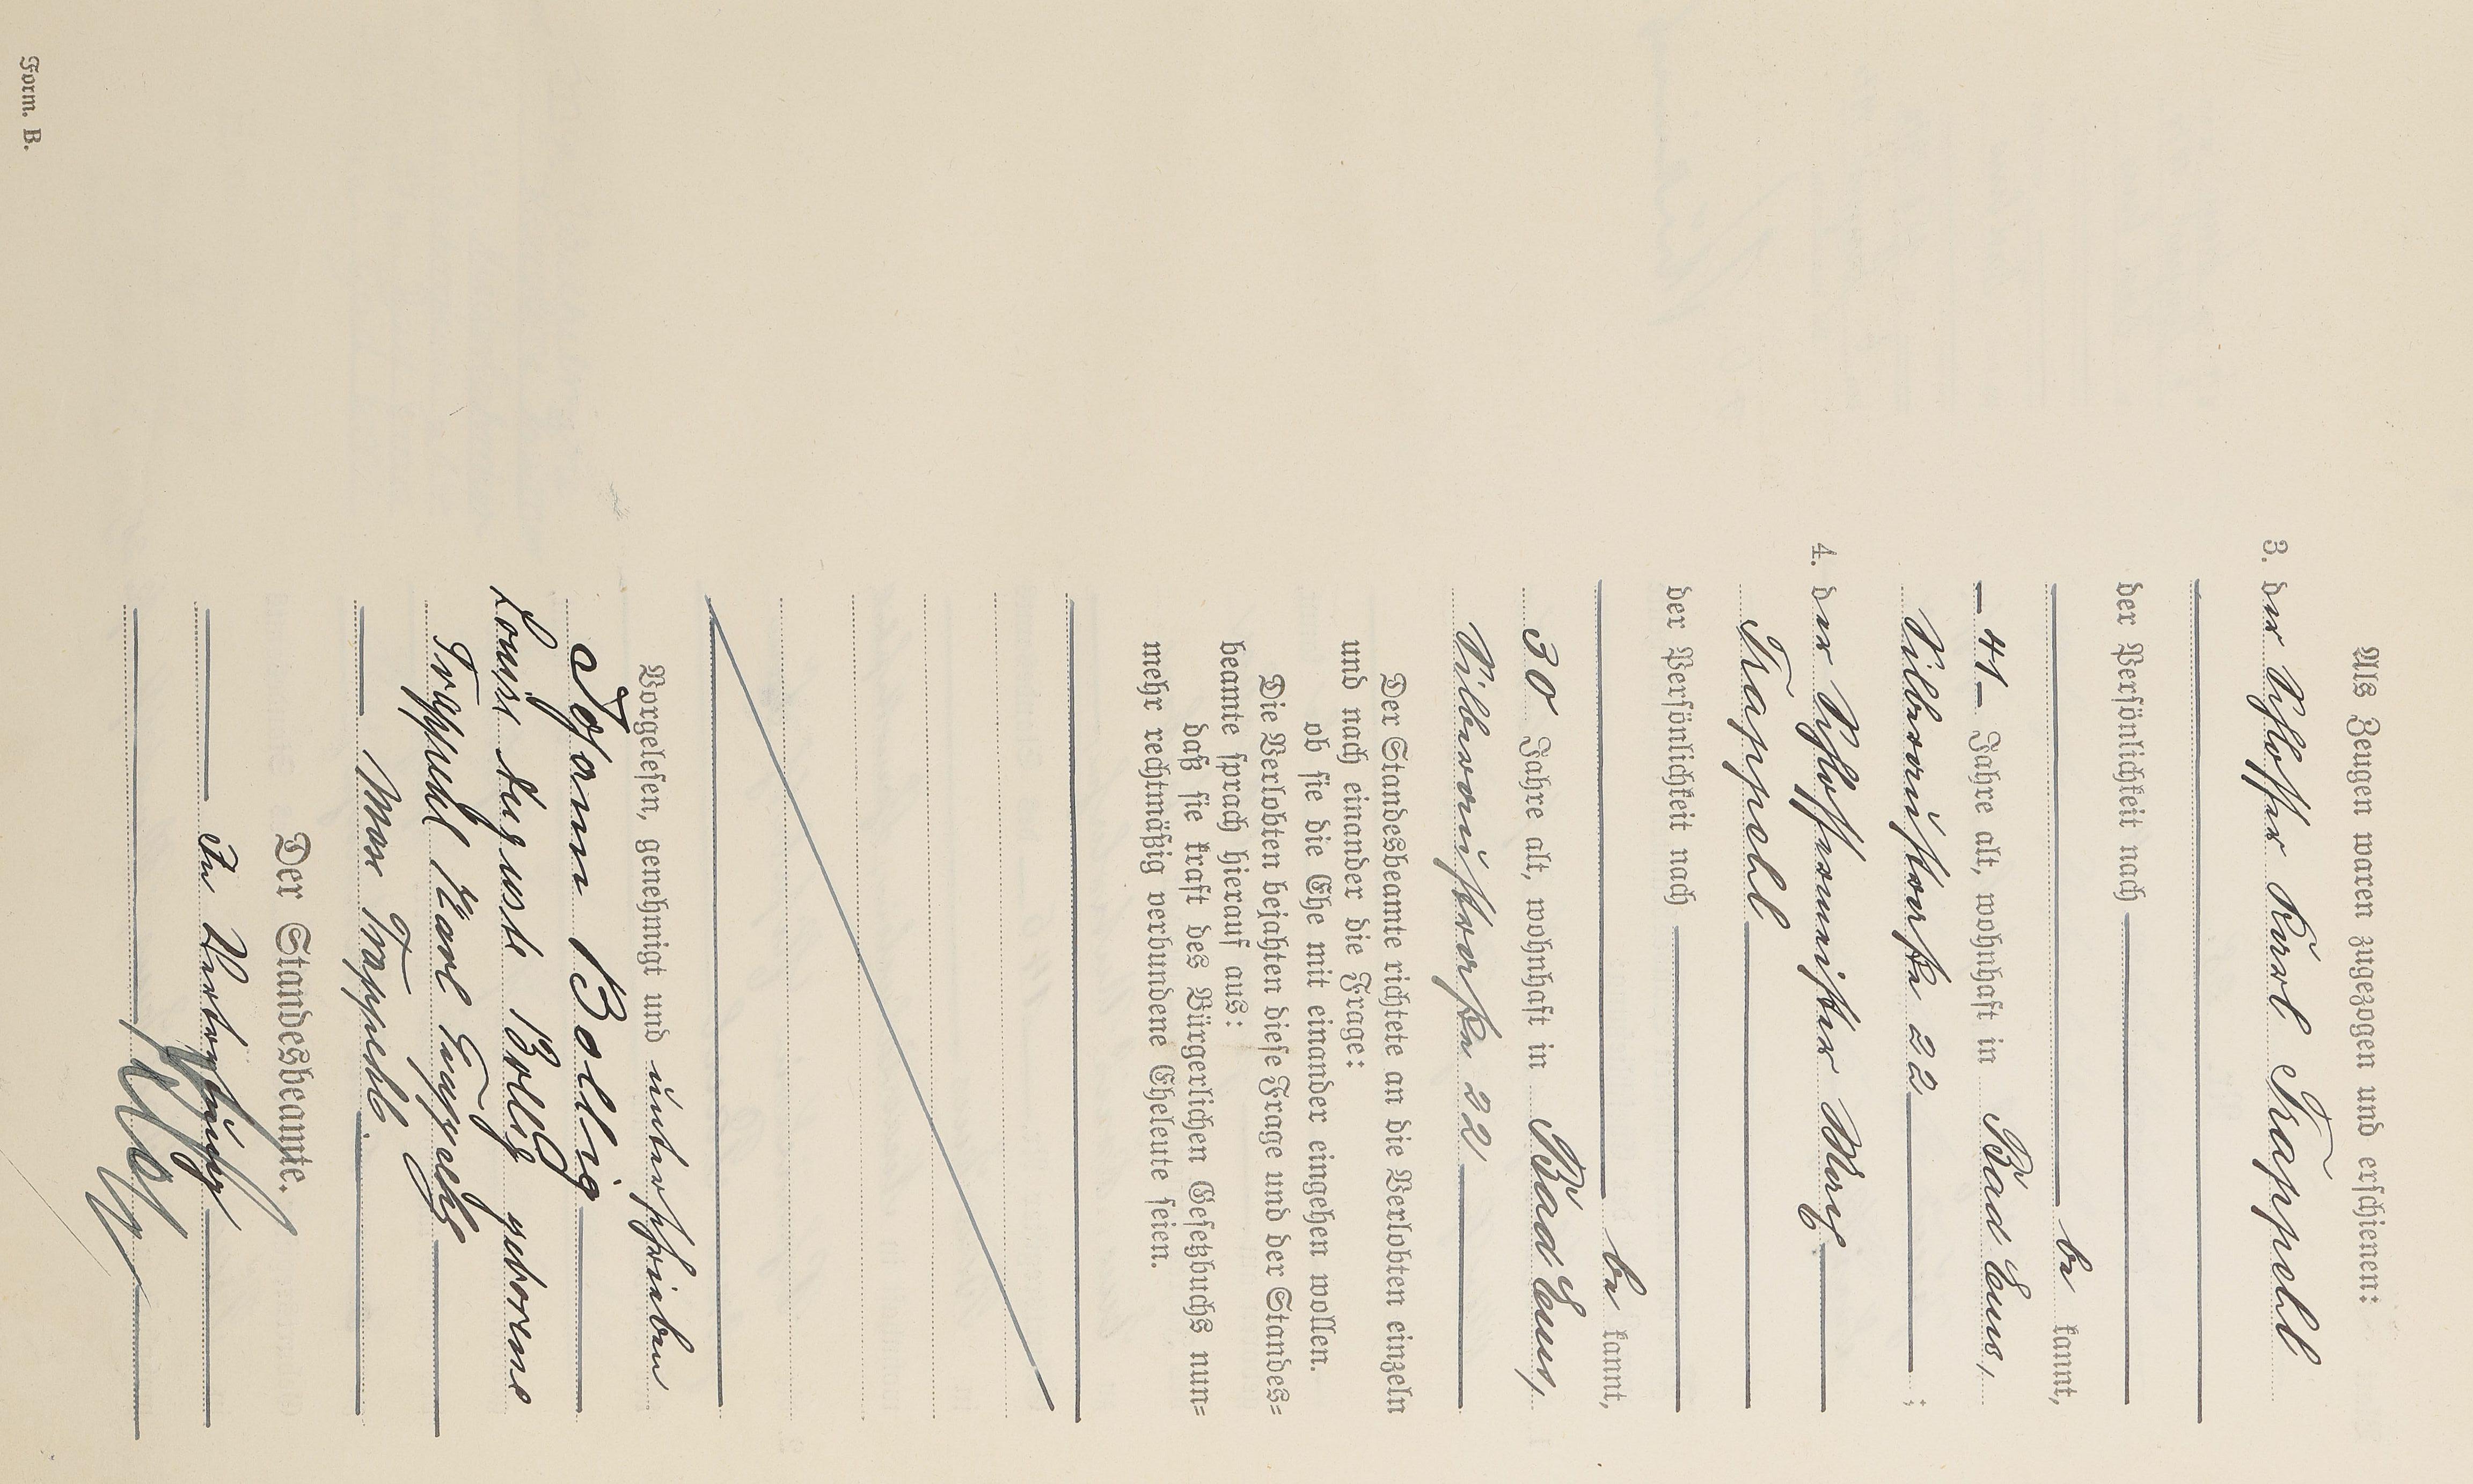 Als Zeugen waren zugezogen und erschienen:
3. der Schlosser Karl Trappehl
der Persönlichkeit nach
be kannt,
41 Jahre alt, wohnhaft in Bad Ems,
Silberaustraße 22 ;
4. der Schlossermeister Marx
Trappehl
der Persönlichkeit nach
be kannt,
30 Jahre alt, wohnhaft in Bad Ems,
Silberaustraße 22
Der Standesbeamte richtete an die Verlobten einzeln
und nach einander die Frage:
ob sie die Ehe mit einander eingehen wollen.
Die Verlobten bejahten diese Frage und der Standes=
beamte sprach hierauf aus:
daß sie kraft des Bürgerlichen Gesetzbuchs nun=
mehr rechtmäßig verbundene Eheleute seien.
Vorgelesen, genehmigt und unterschrieben
Johann Bollig
Louise Auguste Bollig geborene
Trappehl Karl Trappehl
Max Trappehl.
Der Standesbeamte.
In Vertretung
Form. B.